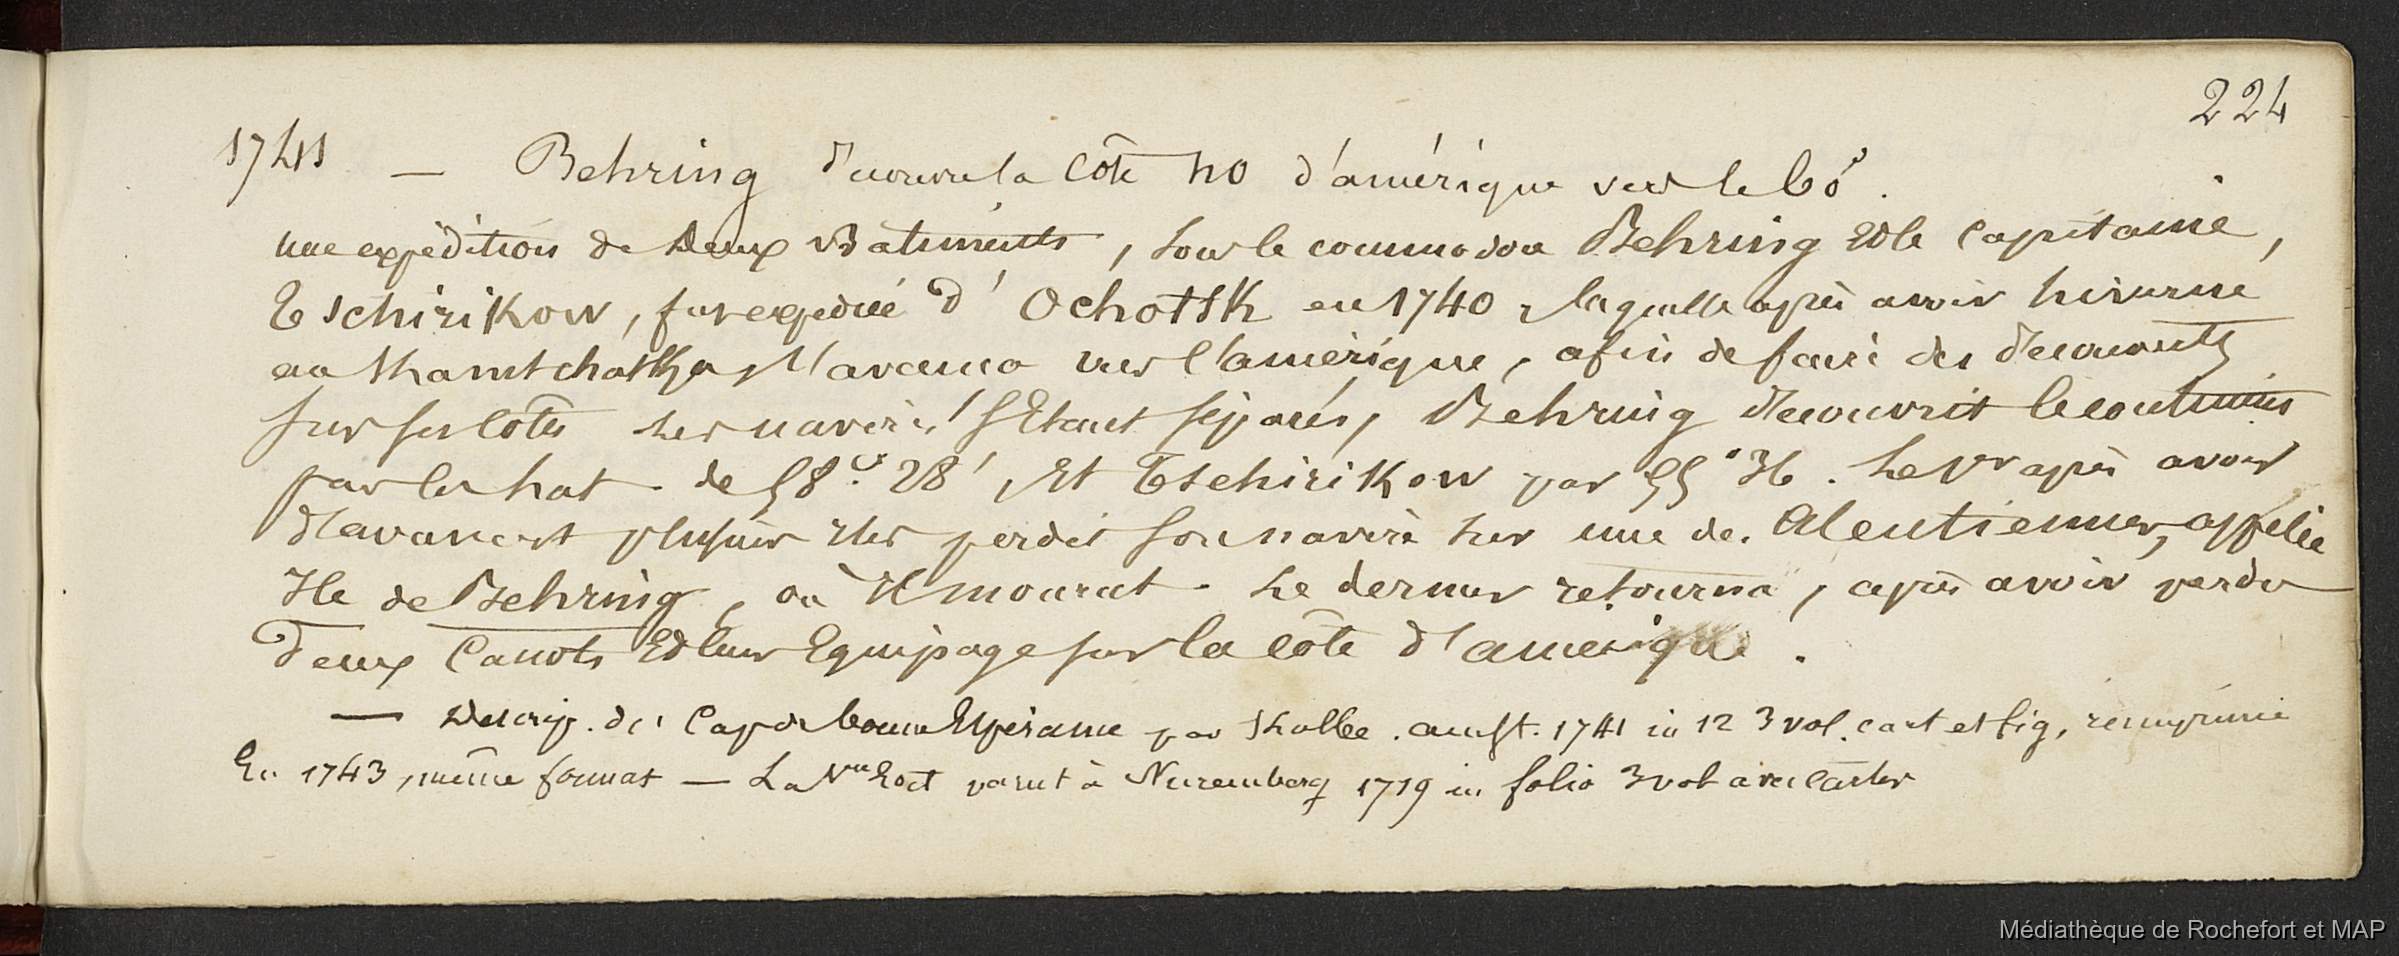 224
1741 — Behring découvre la côte no d'amérique vers le 60°.
une expédition de deux Batiments, sous le commodore Behring Et le Capitaine,
Tschirikow, fut expediée d'Ochotsk en 1740, laquelle après avoir hiverné
au Khamtchatka, s'avança vers l'amérique, afin de faire des découvertes
sur ses côtes. Les navires s'Etant séparés, Behring découvrit le continent
par les lat. de 58° 28', Et Tschirikow par 55° 36. Le 1er après avoir
découvert plusieurs Iles perdit son navire sur une des Aleutiennes, appelée
Ile de Behring, où Il mourut. Le dernier retourna, après avoir perdu
deux Canots Et leur Equipage sur la côte d'amerique.
— Descrip. du Cap de bonne Espérance par Kolbe. amst. 1741 in 12 3 vol. cart et fig, réimprimée
En 1743, même format — La 1ere Edit parut à Nuremberg 1719 in folio 3 vol avec Cartes
Médiathèque de Rochefort et MAP